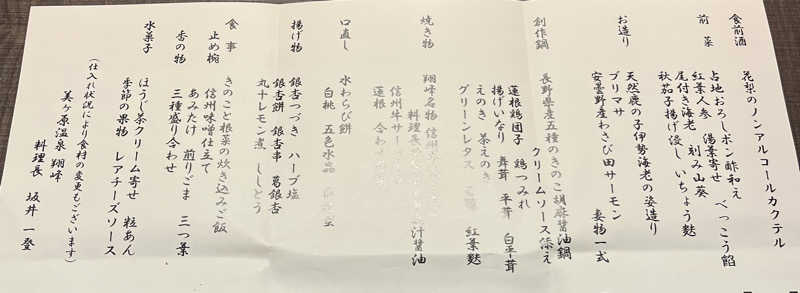 食前酒
花梨のノンアルコールカクテル
前菜
占地おろしポン酢和え
紅葉人参 湯葉寄せ べっこう餡
尾付き海老 刻み山葵
秋茄子揚げ浸し いちょう麩
お造り
天然鹿の子伊勢海老の姿造り
ブリマサ
安曇野産わさび田サーモン 妻物一式
創作鍋
長野県産五種のきのこ胡麻醬油鍋
クリームソース添え
蓮根鶏団子 鶏つみれ
揚げいなり 舞茸 平茸 白平茸
えのき 茶えのき
グリーンレタス 紅葉麩
焼き物
翔峰名物 信州
料理長 汁醬油
信州牛サー
蓮根 合わ
口直し
水わらび餅
白桃 五色水晶
揚げ物
銀杏つづき ハーブ塩
銀杏餅 銀杏串 葛銀杏
丸十レモン煮 ししとう
食事
きのこと根菜の炊き込みご飯
止め椀
信州味噌仕立て
あみたけ 煎りごま 三つ葉
香の物
三種盛り合わせ
水菓子
ほうじ茶クリーム寄せ 粒あん
季節の果物 レアチーズソース
(仕入れ状況により食材の変更もございます)
美ヶ原温泉 翔峰
料理長 坂井 一登